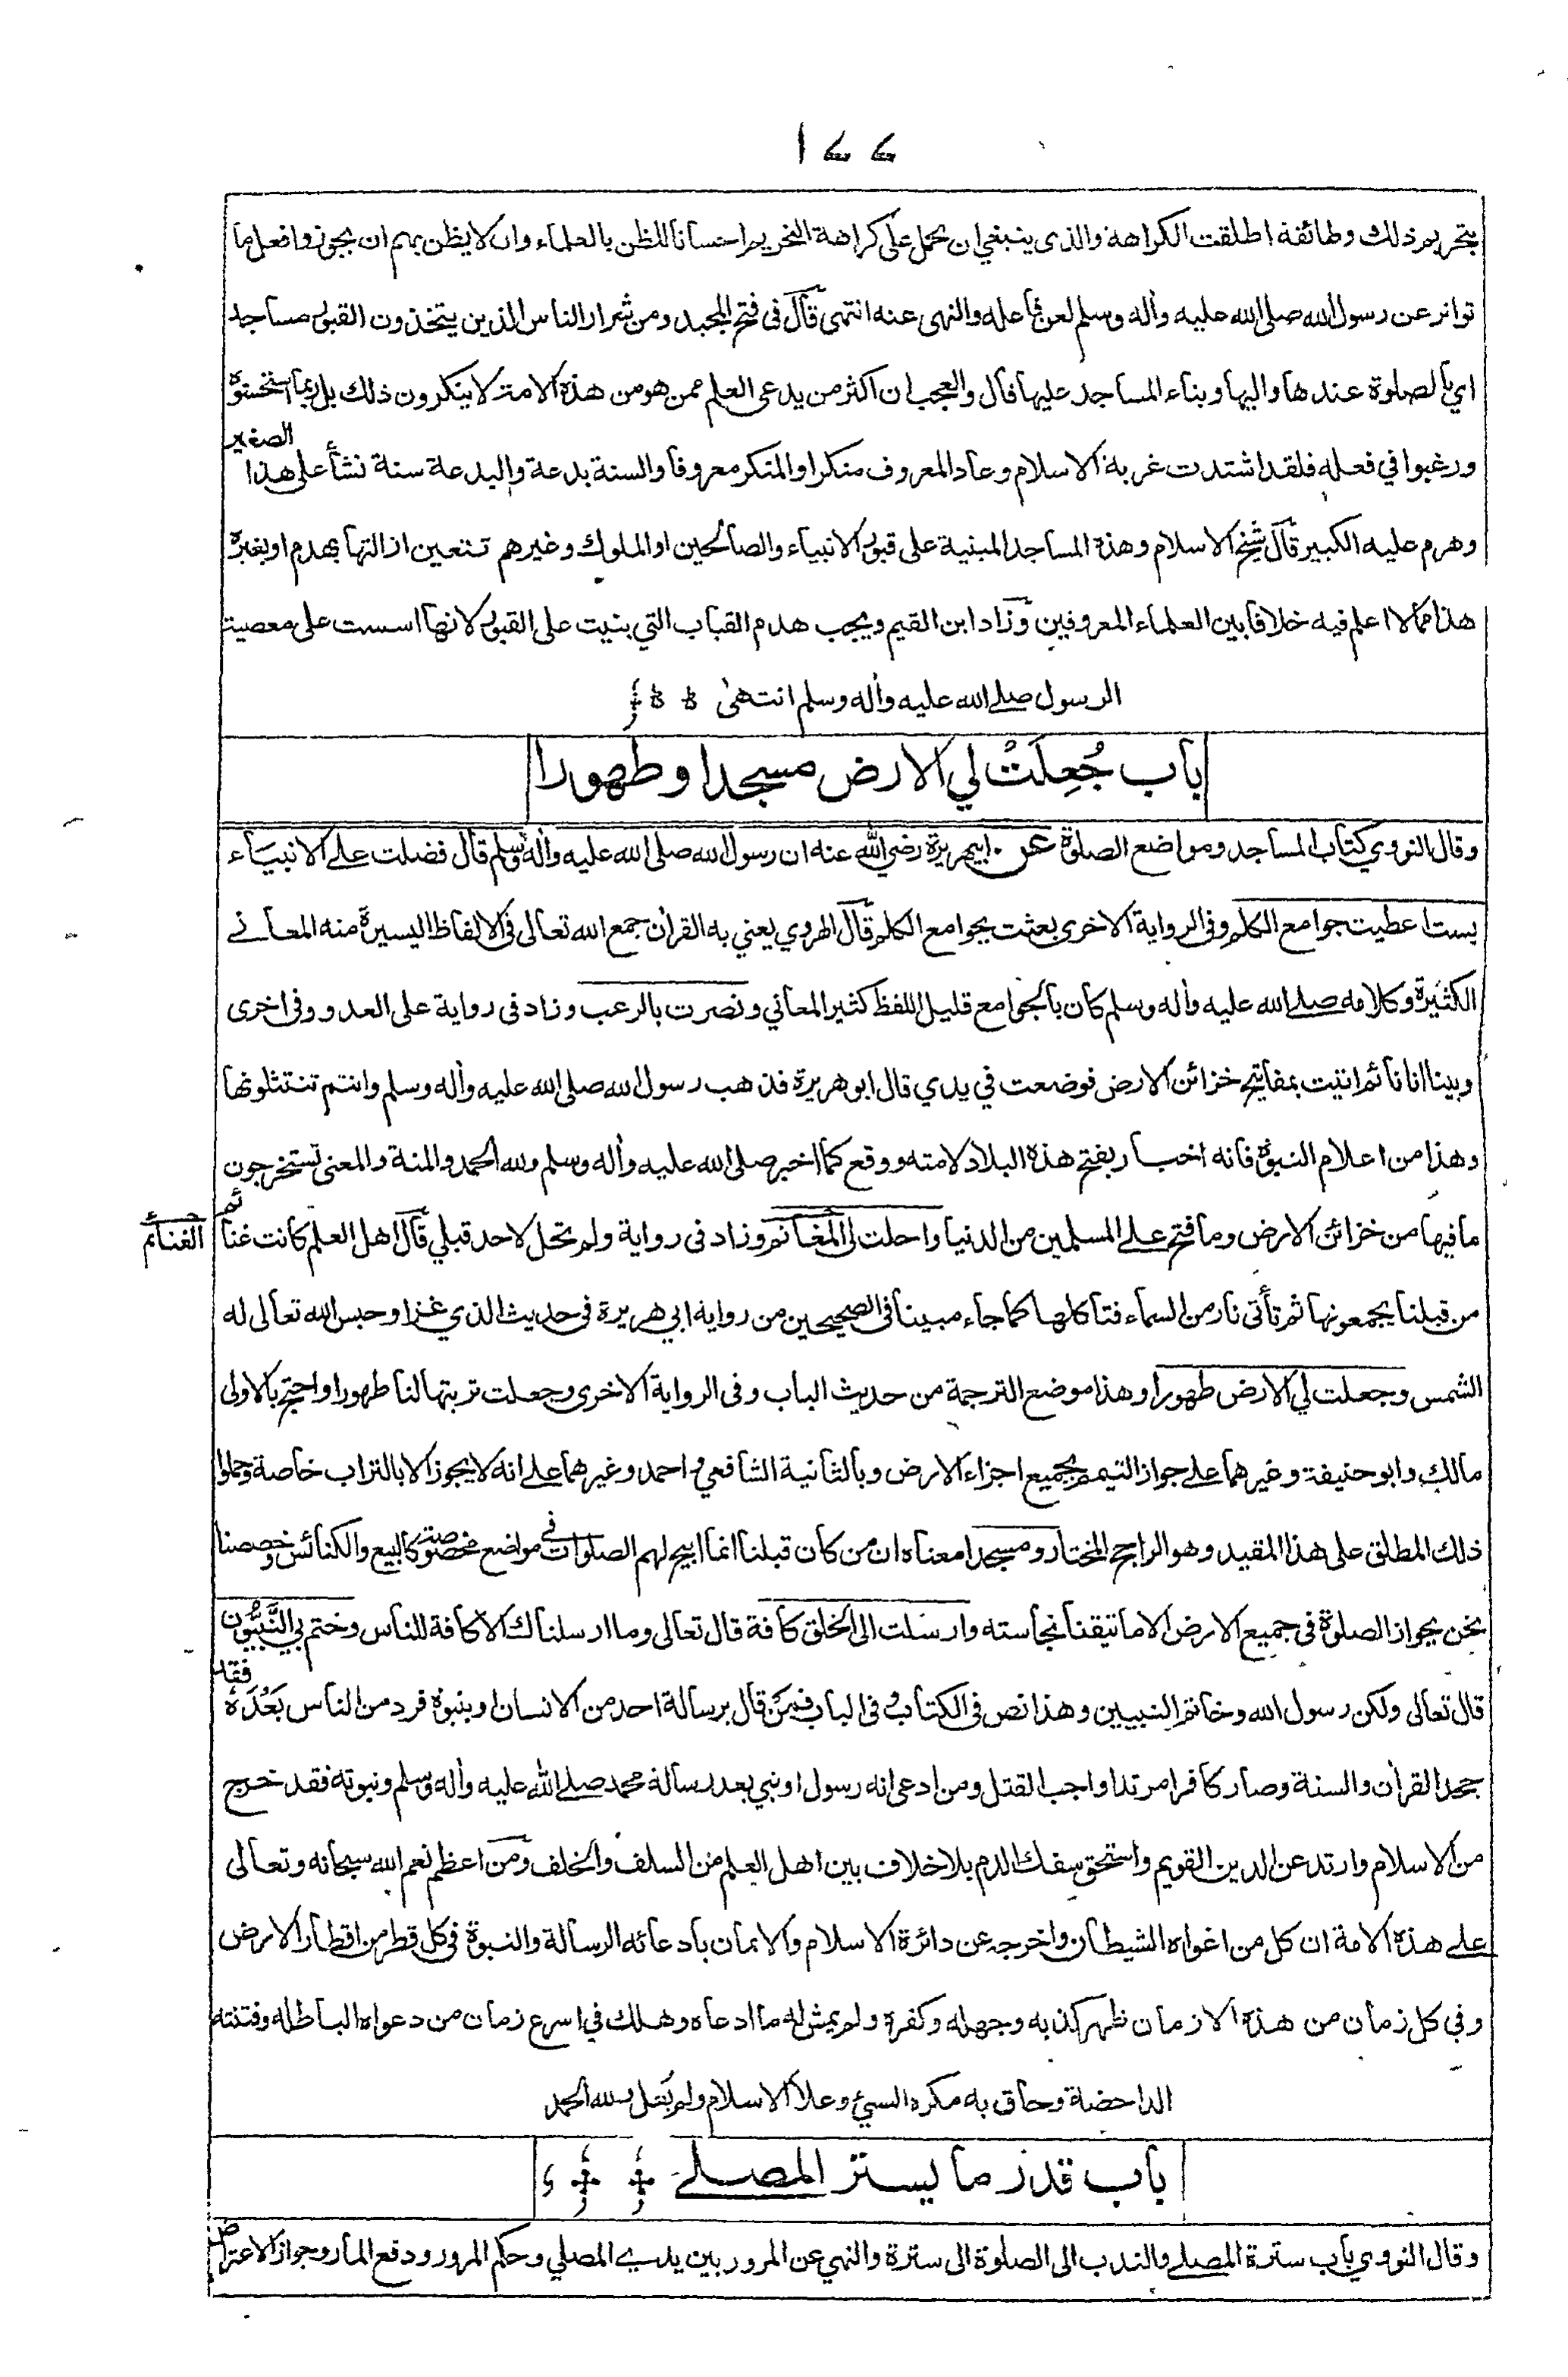 ١٤٤
بتحريم ذلك وطائفة اطلقت الكراهة والذى ينبغي ان يحمل على كراهة التحريم احسانا للظن بالعلماء وان لا يظن بهم ان يجوزوا فعل ما
تواتر عن رسول الله صلى الله عليه واٰله وسلم لعن فاعله والنهى عنه انتهى قال فى فتح المجيد ومن شرار الناس الذين يتخذون القبور مساجد
اي بالصلوة عندها واليها وبناء المساجد عليها قال والعجب ان اكثر من يدعى العلم ممن هو من هذه الامة لا ينكرون ذلك بل ربما استحسنوه
ورغبوا في فعله فلقد اشتدت غربة الاسلام وعاد المعروف منكرا والمنكر معروفا والسنة بدعة والبدعة سنة نشأ على هذا الصغير
وهرم عليه الكبير قال شيخ الاسلام وهذه المساجد المبنية على قبور الانبياء والصالحين او الملوك وغيرهم تتعين ازالتها بهدم او بغيره
هذا مما لا اعلم فيه خلافا بين العلماء المعروفين وزاد ابن القيم ويجب هدم القباب التي بنيت على القبور لانها اسست على معصية
الرسول صلے الله عليه واٰله وسلم انتهىٰ
باب جُعِلَتْ لي الارض مسجدا وطهورا
وقال النووي كتاب المساجد ومواضع الصلوة عن ابيهريرة رضي الله عنه ان رسول الله صلى الله عليه واٰله وسلم قال فضلت علے الانبيـاء
بست اعطيت جوامع الكلم وفى الرواية الاخرى بعثت بجوامع الكلم قال الهروي يعني به القراٰن جمع الله تعالى فى الالفاظ اليسيرة منه المعانے
الكثيرة وكلامه صلے الله عليه واٰله وسلم كان بالجوامع قليل اللفظ كثير المعاني ونصرت بالرعب وزاد فى رواية على العدو وفى اخرى
وبينا انا نائم اتيت بمفاتيح خزائن الارض فوضعت في يدي قال ابو هريرة فذهب رسول الله صلى الله عليه واٰله وسلم وانتم تنتثلونها
وهذا من اعلام النبوة فانه اخبار بفتح هذه البلاد لامته ووقع كما اخبر صلى الله عليه واٰله وسلم ولله الحمد والمنة والمعنى تستخرجون
ما فيها من خزائن الارض وما فتح علے المسلمين من الدنيا واحلت لى المغانم وزاد فى رواية ولم تحل لاحد قبلي قال اهل العلم كانت غنائم
الغنائم
من قبلنا يجمعونها ثم تأتى نار من السماء فتاكلها كما جاء مبينا فى الصحيحين من رواية ابي هريرة فى حديث الذي غزا وحبس الله تعالى له
الشمس وجعلت لي الارض طهورا وهذا موضع الترجمة من حديث الباب وفى الرواية الاخرى وجعلت تربتها لنا طهورا واحتج بالاولى
مالك وابو حنيفة وغيرهما علے جواز التيمم بجميع اجزاء الارض وبالثانية الشافعي واحمد وغيرهما علے انه لا يجوز الا بالتراب خاصة وحملوا
ذلك المطلق على هذا المقيد وهو الراجح المختار ومسجدا معناه ان من كان قبلنا انما ابيح لهم الصلوات فى مواضع مخصوصة كالبيع والكنائس وخصصنا
نحن بجواز الصلوة فى جميع الارض الا ما تيقنا نجاسته وارسلت الى الخلق كافة قال تعالى وما ارسلناك الا كافة للناس وختم بي النَّبِيُّون
قال تعالى ولكن رسول الله وخاتم النبيين وهذا نص فى الكتاب وفى الباب فمن قال برسالة احد من الانسان او بنبوة فرد من الناس بَعْدَه فقد
جحد القراٰن والسنة وصار كافرا مرتدا واجب القتل ومن ادعى انه رسول او نبي بعد رسالة محمد صلے الله عليه واٰله وسلم ونبوته فقد خرج
من الاسلام وارتد عن الدين القويم واستحق سفك الدم بلا خلاف بين اهل العلم من السلف والخلف ومن اعظم نعم الله سبحانه وتعالى
علے هذه الامة ان كل من اغواه الشيطان واخرجه عن دائرة الاسلام والايمان بادعائه الرسالة والنبوة فى كل قطر من اقطار الارض
وفي كل زمان من هذه الازمان ظهر كذبه وجهله وكفره ولم يمش له ما ادعاه وهلك في اسرع زمان من دعواه الباطلة وفتنته
الداحضة وحاق به مكره السيئ وعلا الاسلام ولم يُعل ولله الحمد
باب قدر ما يستر المصلے
وقال النووي باب سترة المصلے والندب الى الصلوة الى سترة والنهي عن المرور بين يدے المصلي وحكم المرور ودفع المار وجواز الاعتراض